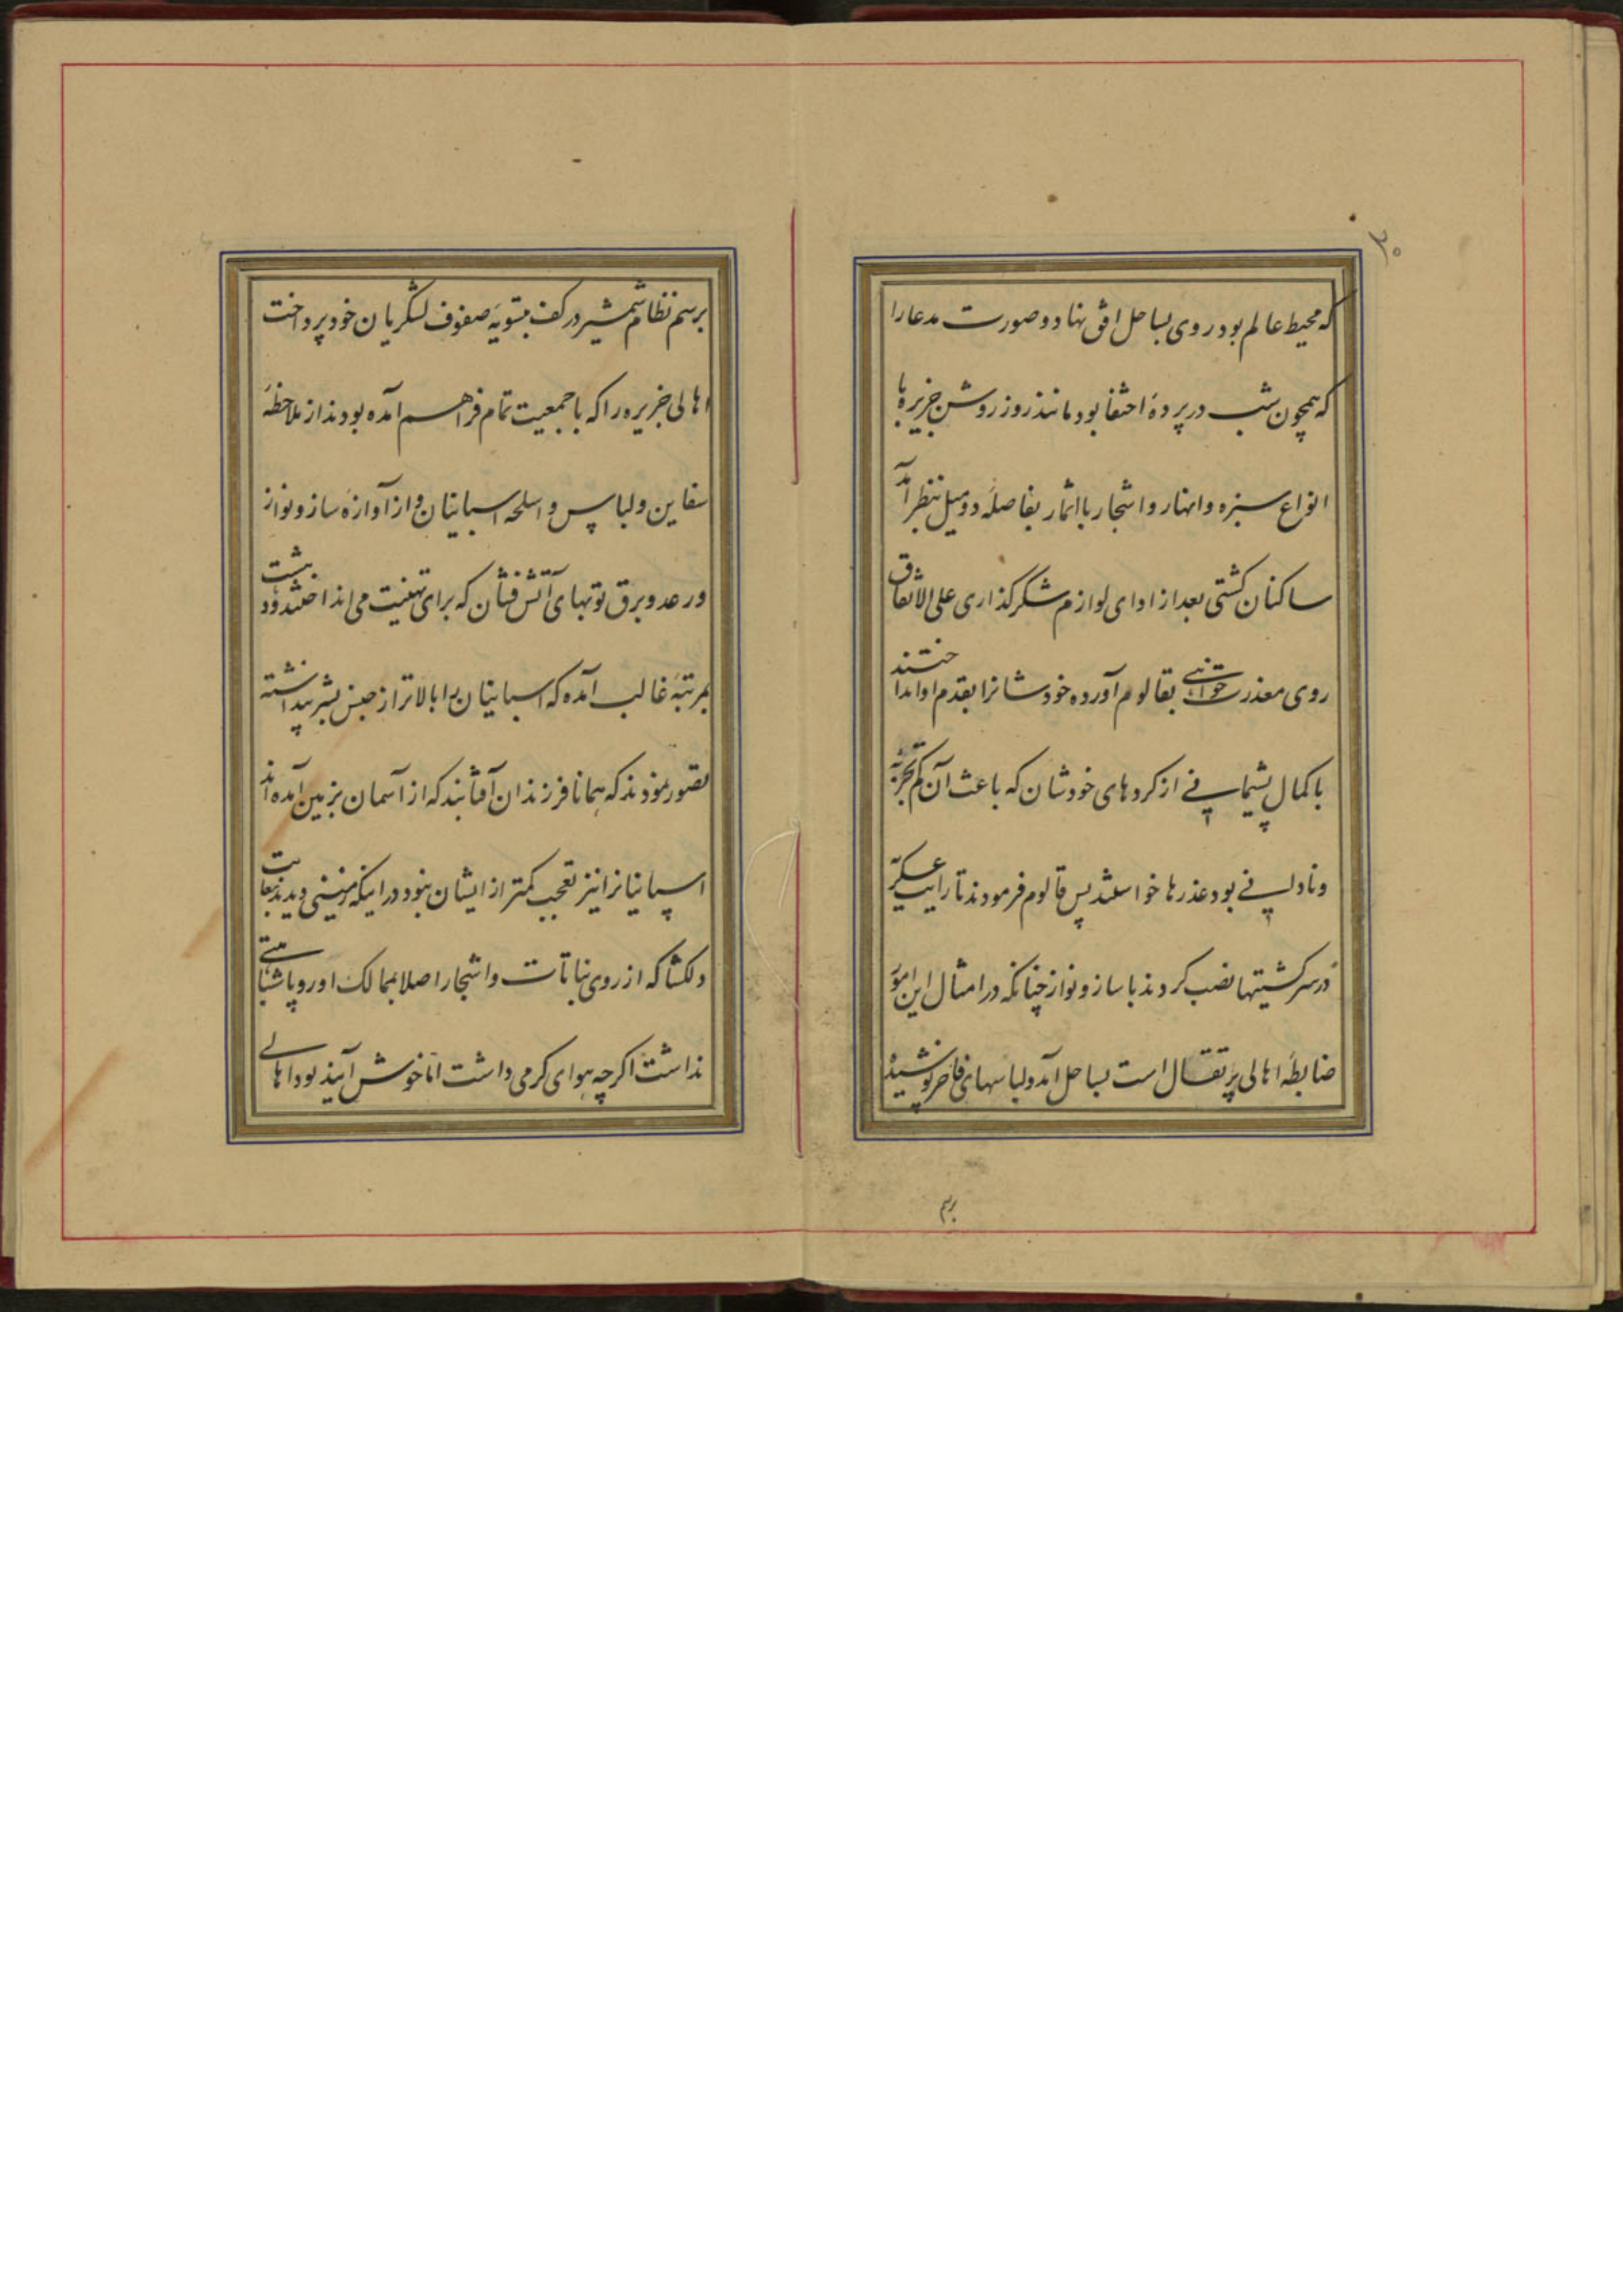 ۳۰
که محیط عالم بود روی بساحل افق نهاد و صورت مدعا را
که همچون شب در پردهٔ اختفا بود مانند روز روشن جزیرهٔ با
انواع سبزه و انهار و اشجار با اثمار بفاصلهٔ دو میل بنظر آمد
ساکنان کشتی بعد از ادای لوازم شکرگذاری علی الاتفاق
روی معذرت خواهی بقالوم آورده خودشانرا بقدم او انداختند
با کمال پشیمانی از کردهای خودشان که باعث آن کم تجربه
و نادانی بود عذرها خواستند پس قالوم فرمودند تا رایت عسکریه
در سر کشتیها نصب کردند با ساز و نواز چنانکه در امثال این امور
ضابطهٔ اهالی پرتقال است بساحل آمد و لباسهای فاخر پوشیده
برسم
برسم نظام شمشیر در کف بتسویهٔ صفوف لشکریان خود پرداخت
اهالی جزیره را که با جمعیت تمام فراهم آمده بودند از ملاحظهٔ
سفاین و لباس و اسلحه اسپانیان و از آوازهٔ ساز و نواز
و رعد و برق توپهای آتش فشان که برای تهنیت می انداختند دهشت
بمرتبهٔ غالب آمده که اسپانیان را بالاتر از جنس بشر پنداشته
تصور نمودند که همانا فرزندان آفتابند که از آسمان بزمین آمده اند
اسپانیانرا نیز تعجب کمتر از ایشان نبود در اینکه زمینی دیدند بغایت
دلکشا که از روی نباتات و اشجار اصلا بممالک اوروپا شباهتی
نداشت اکرچه هوای کرمی داشت اما خوش آیند بود اهالی